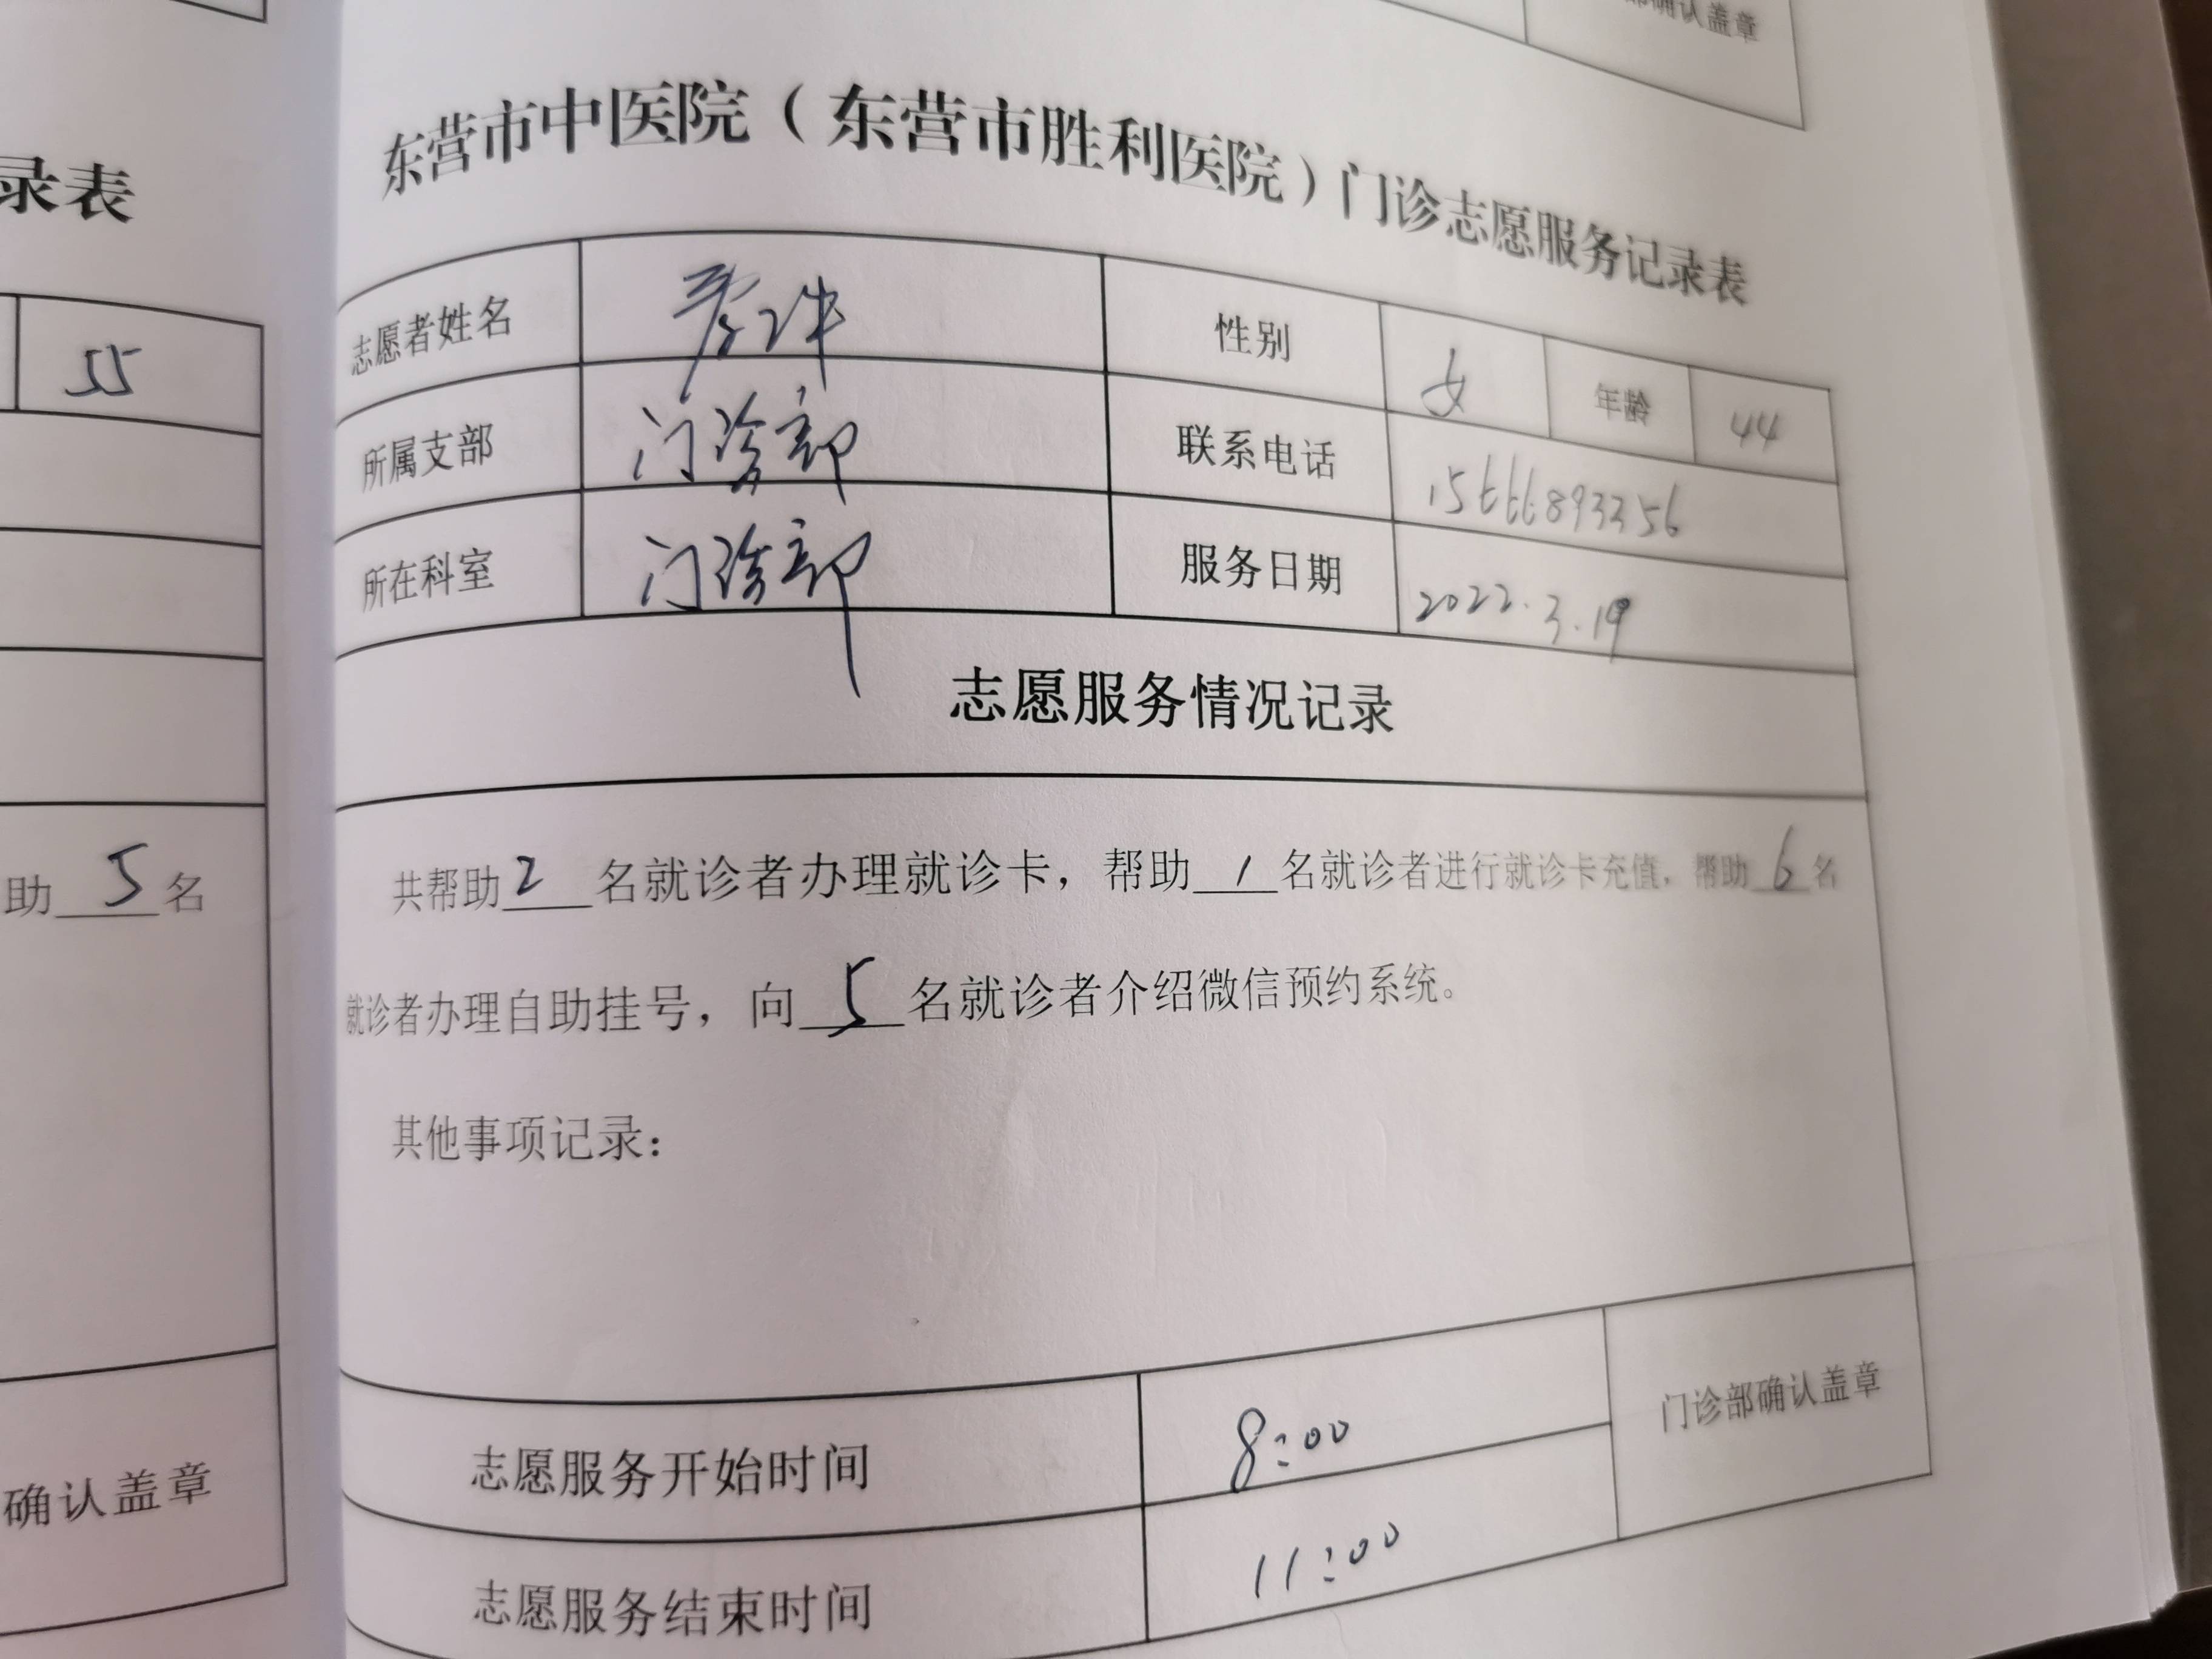 部确认盖章
录表
55
助 5 名
确认盖章
东营市中医院（东营市胜利医院）门诊志愿服务记录表
志愿者姓名 性别 女 年龄 44
所属支部 门诊部 联系电话 15666893356
所在科室 门诊部 服务日期 2022.3.19
志愿服务情况记录
共帮助2名就诊者办理就诊卡，帮助1名就诊者进行就诊卡充值，帮助6名
就诊者办理自助挂号，向5名就诊者介绍微信预约系统。
其他事项记录：
志愿服务开始时间 8:00 门诊部确认盖章
志愿服务结束时间 11:00